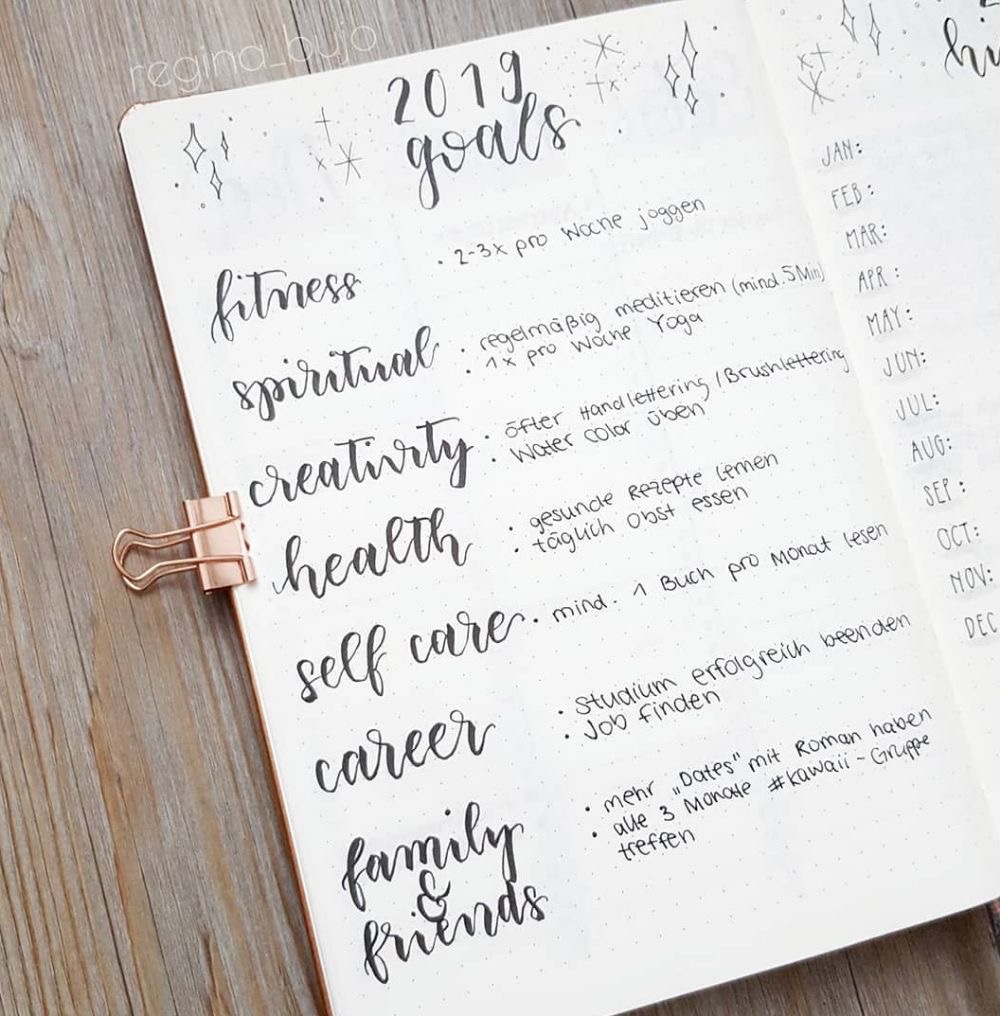 regina_bujo
2019
goals
fitness
• 2-3x pro Woche joggen
spiritual
• regelmäßig meditieren (mind. 5 Min)
• 1x pro Woche Yoga
creativity
• öfter Handlettering / Brushlettering
• Water color üben
health
• gesunde Rezepte lernen
• täglich Obst essen
self care
• mind. 1 Buch pro Monat lesen
career
• Studium erfolgreich beenden
• Job finden
family
&
friends
• mehr „Dates" mit Roman haben
• alle 3 Monate #kawaii-Gruppe
treffen
JAN:
FEB:
MAR:
APR:
MAY:
JUN:
JUL:
AUG:
SEP:
OCT:
NOV:
DEC